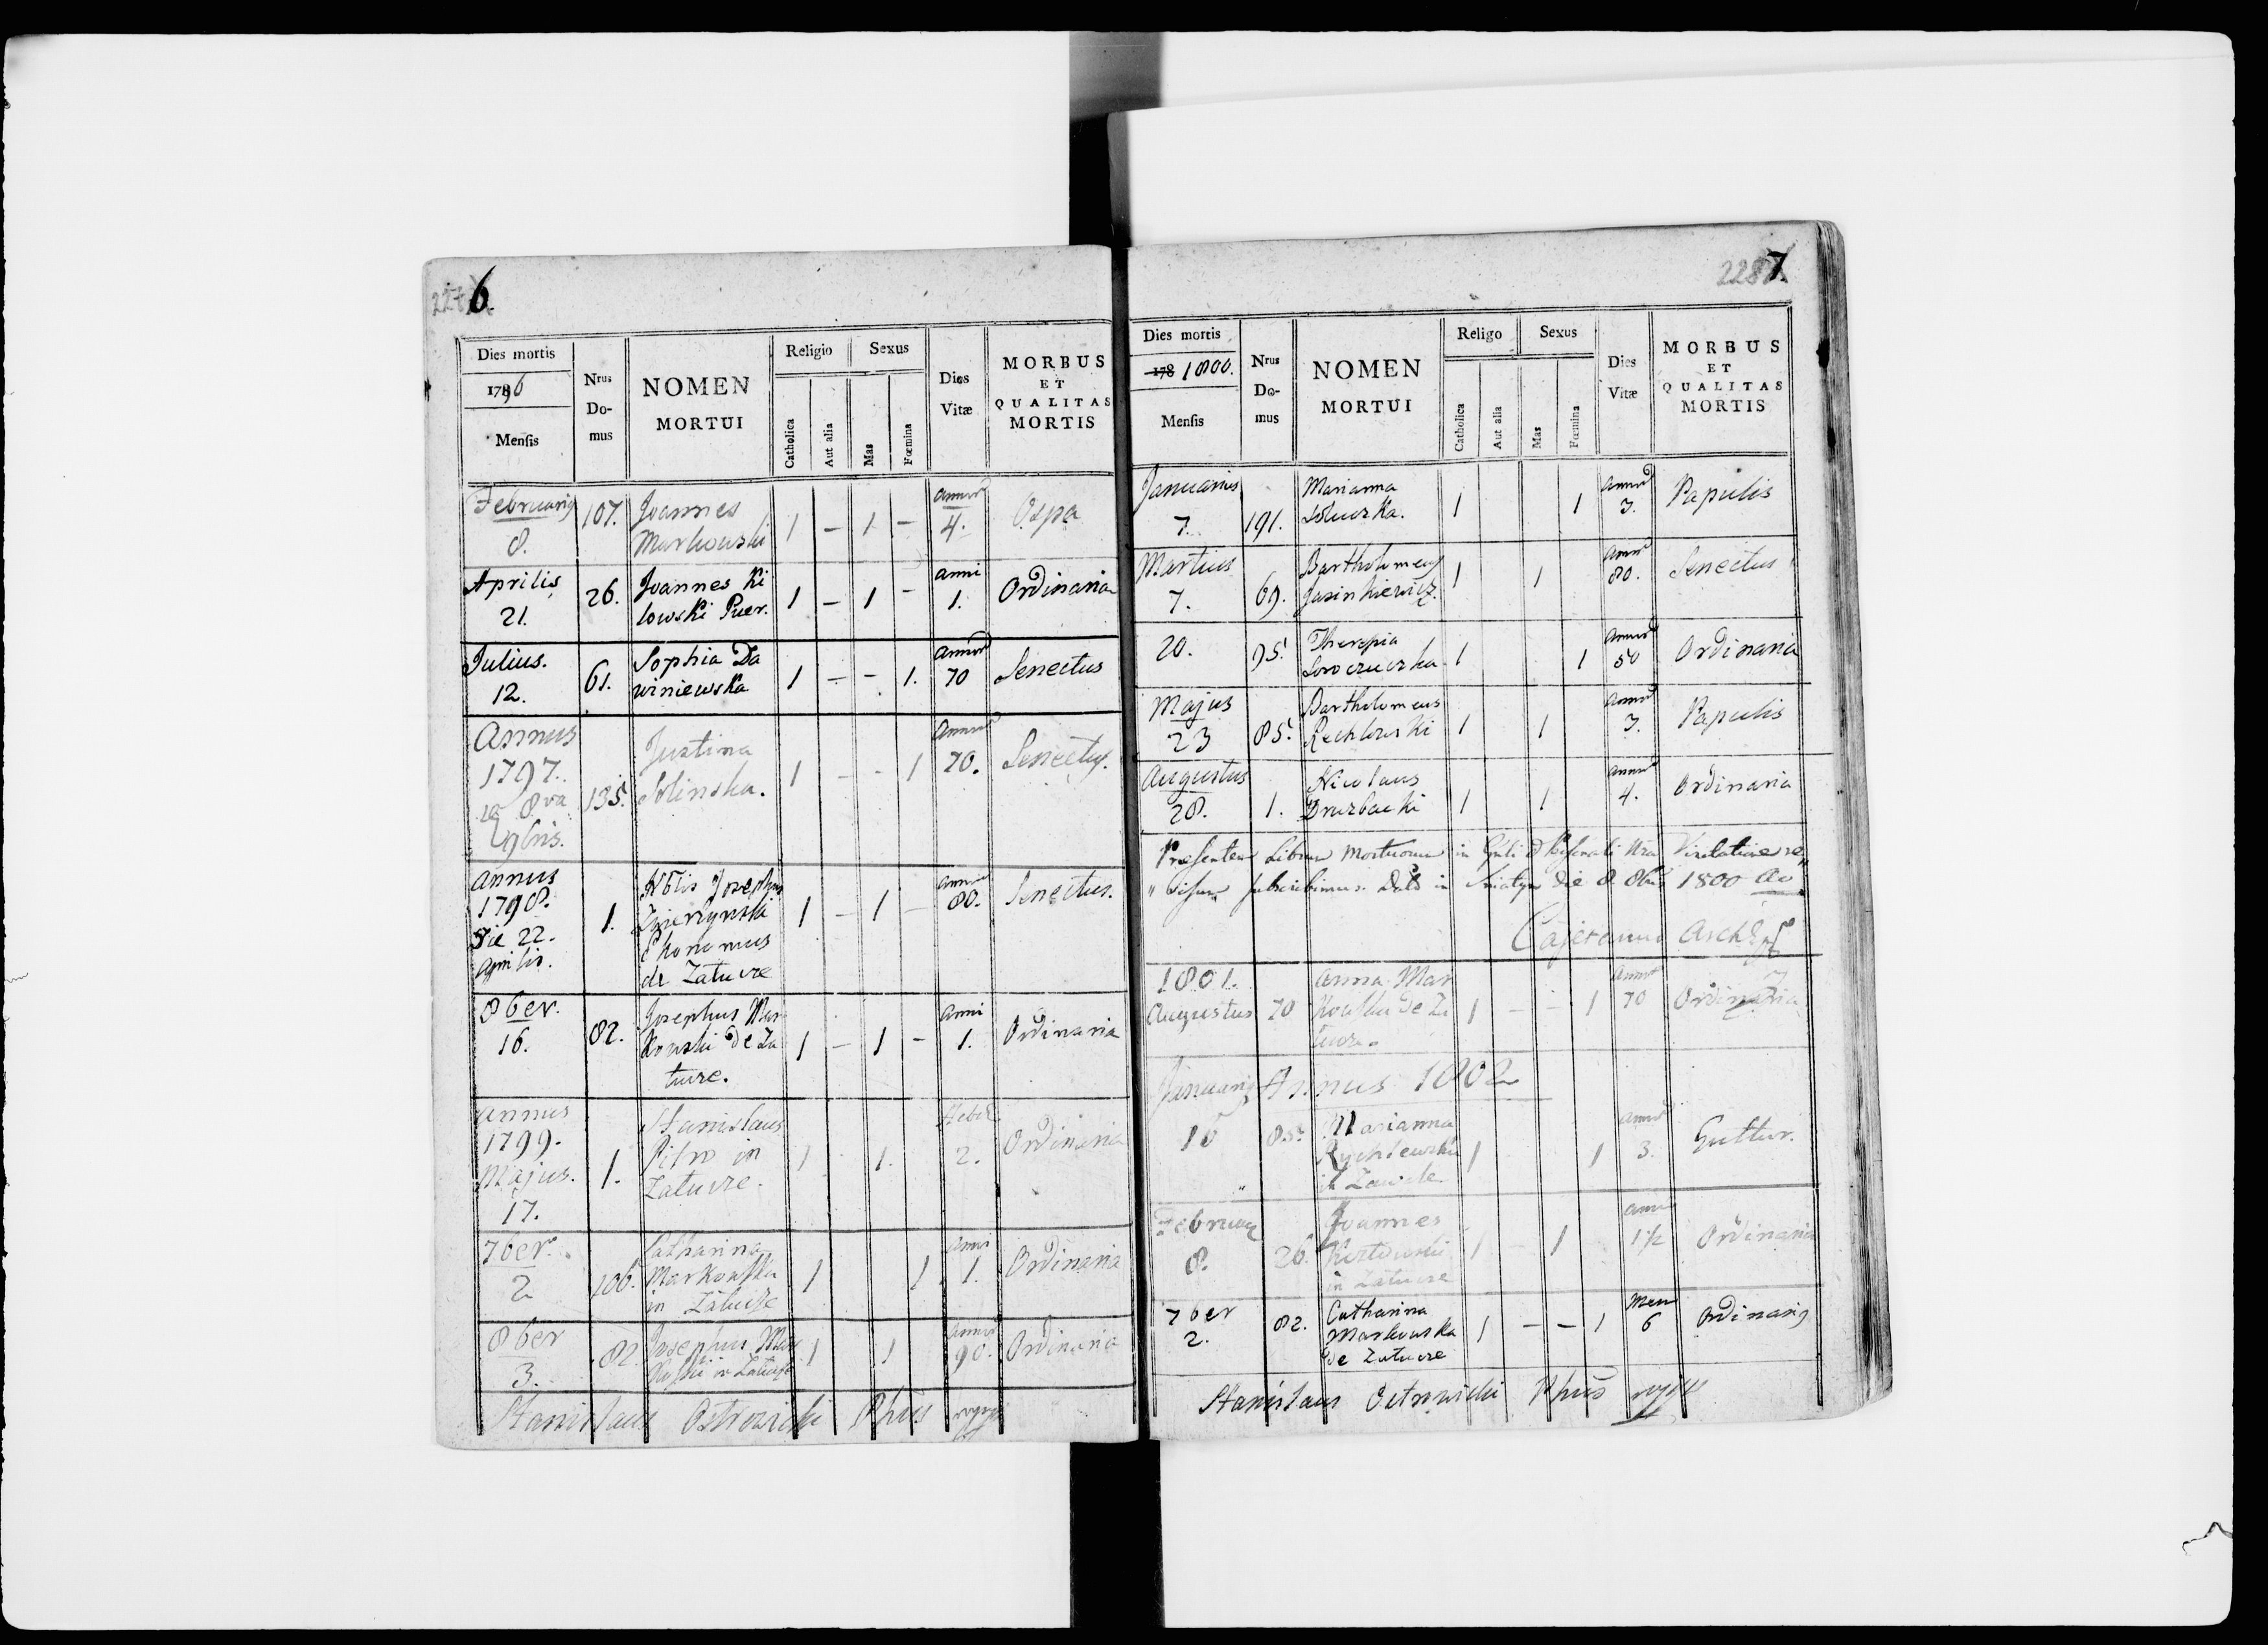 6
Dies mortis
1796
Mensis
Nrus
Do-
mus
NOMEN
MORTUI
Religio
Catholica
Aut alia
Sexus
Mas
Fœmina
Dies
Vitæ
MORBUS
ET
QUALITAS
MORTIS
Februarij
8.
107.
Joannes
Markowski
1 – 1 –
Annor
4.
Ospa
Aprilis
21.
26.
Joannes Ki
lowski Puer.
1 – 1 –
anni
1.
Ordinaria
Julius.
12.
61.
Sophia Da
winiewska
1 – – 1.
annor
70
Senectus
Annus
1797.
8va
9bris.
135.
Justina
1 – – 1
Annor
70.
Senectus.
Annus
1798.
Die 22.
Aprilis.
1.
Nblis Josephus
Ekonomus
de Zatucze
1 – 1 –
Annor
80.
Senectus.
8ber.
16.
82.
Josephus Mar
kowski de Za
tucze.
1 – 1 –
Anni
1.
Ordinaria
Annus
1799.
Majus.
17.
1.
Stanislaus
in
Zatucze.
1 1.
Hebd
2.
Ordinaria
7ber.
2
106.
Catharina
Markowska
in Zatucze
1 1
Anni
1.
Ordinaria
8ber
3.
82.
Josephus Mar
in Zatucze
1 1
Annor
90.
Ordinaria
Stanislaus Ostrowicki Pchus mppr
2287.
Dies mortis
178 1800.
Mensis
Nrus
Do-
mus
NOMEN
MORTUI
Religo
Catholica
Aut alia
Sexus
Mas
Fœmina
Dies
Vitæ
MORBUS
ET
QUALITAS
MORTIS
Januarius
7.
191.
Marianna
1 1
Annor
3.
Papulis
Martius
7.
69.
Bartholomeus
Jasinkiewicz.
1 1
Annor
80.
Senectus
20.
95.
Theresia
Soroczuczka
1 1
Annor
50
Ordinaria
Majus
23
85.
Bartholomeus
Rechlowski
1 1
Annor
3.
Papulis
Augustus
28.
1.
Nicolaus
Druzbacki
1 1
Annor
4.
Ordinaria
Presentem Librum Mortuorum in Visitatione re
visum subscribimus. Datt in Sniatyn die 8 8bris 1800 Ao
Cajetanus
1801.
Augustus
70
Anna Mar
kowska de Za
tucze.
1 – – 1
Annor
70
Ordinaria
Januarij Annus 1802
16
85.
Marianna
Rychlewska
in Zatucze
1 1
Annor
3.
Guttur.
Februarij
8.
26.
Joannes
in Zatucze
1 – 1
Anni
1 1/2
Ordinaria
7ber
2.
82.
Catharina
Markowska
de Zatucze
1 – – 1
Men
6
Ordinaria
Stanislaus Ostrowicki Pchus mppr